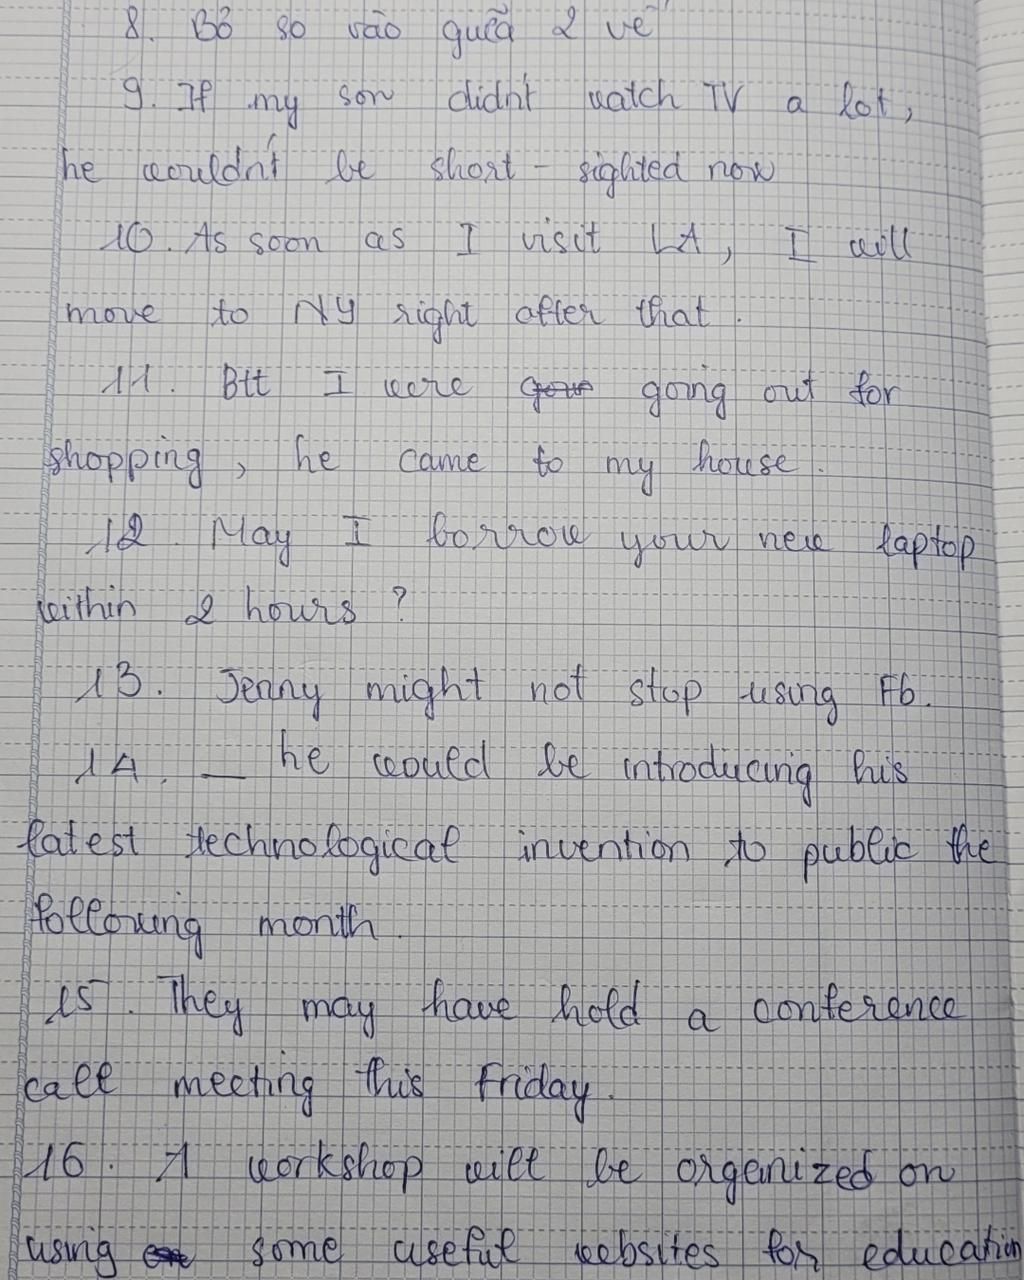 8. Bỏ so vào giữa 2 vế
9. If my son didn't watch TV a lot,
he wouldn't be short - sighted now
10. As soon as I visit LA, I will
move to NY right after that.
11. Btt I were going out for
shopping, he came to my house.
12 May I borrow your new laptop
within 2 hours ?
13. Jenny might not stop using Fb.
14. __ he would be introducing his
latest technological invention to public the
following month.
15. They may have hold a conference
call meeting this Friday.
16. A workshop will be organized on
using some useful websites for education